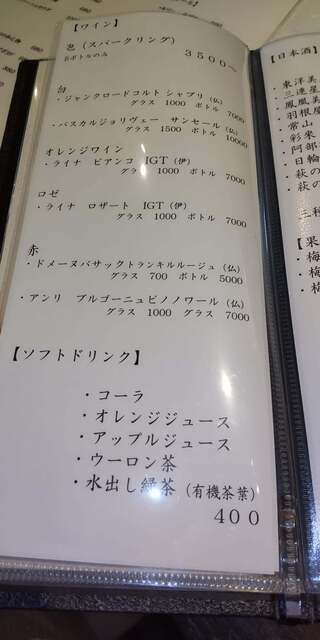 【ワイン】
泡（スパークリング）
※ボトルのみ
３５００〜
白
・ジャンクロードコルト シャブリ（仏）
グラス 1000 ボトル 7000
・パスカルジョリヴェー サンセール（仏）
グラス 1500 ボトル 10000
オレンジワイン
・ライナ ビアンコ IGT（伊）
グラス 1000 ボトル 7000
ロゼ
・ライナ ロザート IGT（伊）
グラス 1000 ボトル 7000
赤
・ドメーヌバサックトランキルルージュ（仏）
グラス 700 ボトル 5000
・アンリ ブルゴーニュピノノワール（仏）
グラス 1000 グラス 7000
【ソフトドリンク】
・コーラ
・オレンジジュース
・アップルジュース
・ウーロン茶
・水出し緑茶（有機茶葉）
４００
【日本酒】
・東洋美
・三連星
・鳳凰美
・羽根屋
・常山
・彩來
・阿部
・日輪
・萩の
・萩の
三種
【果
・梅
・梅
・梅